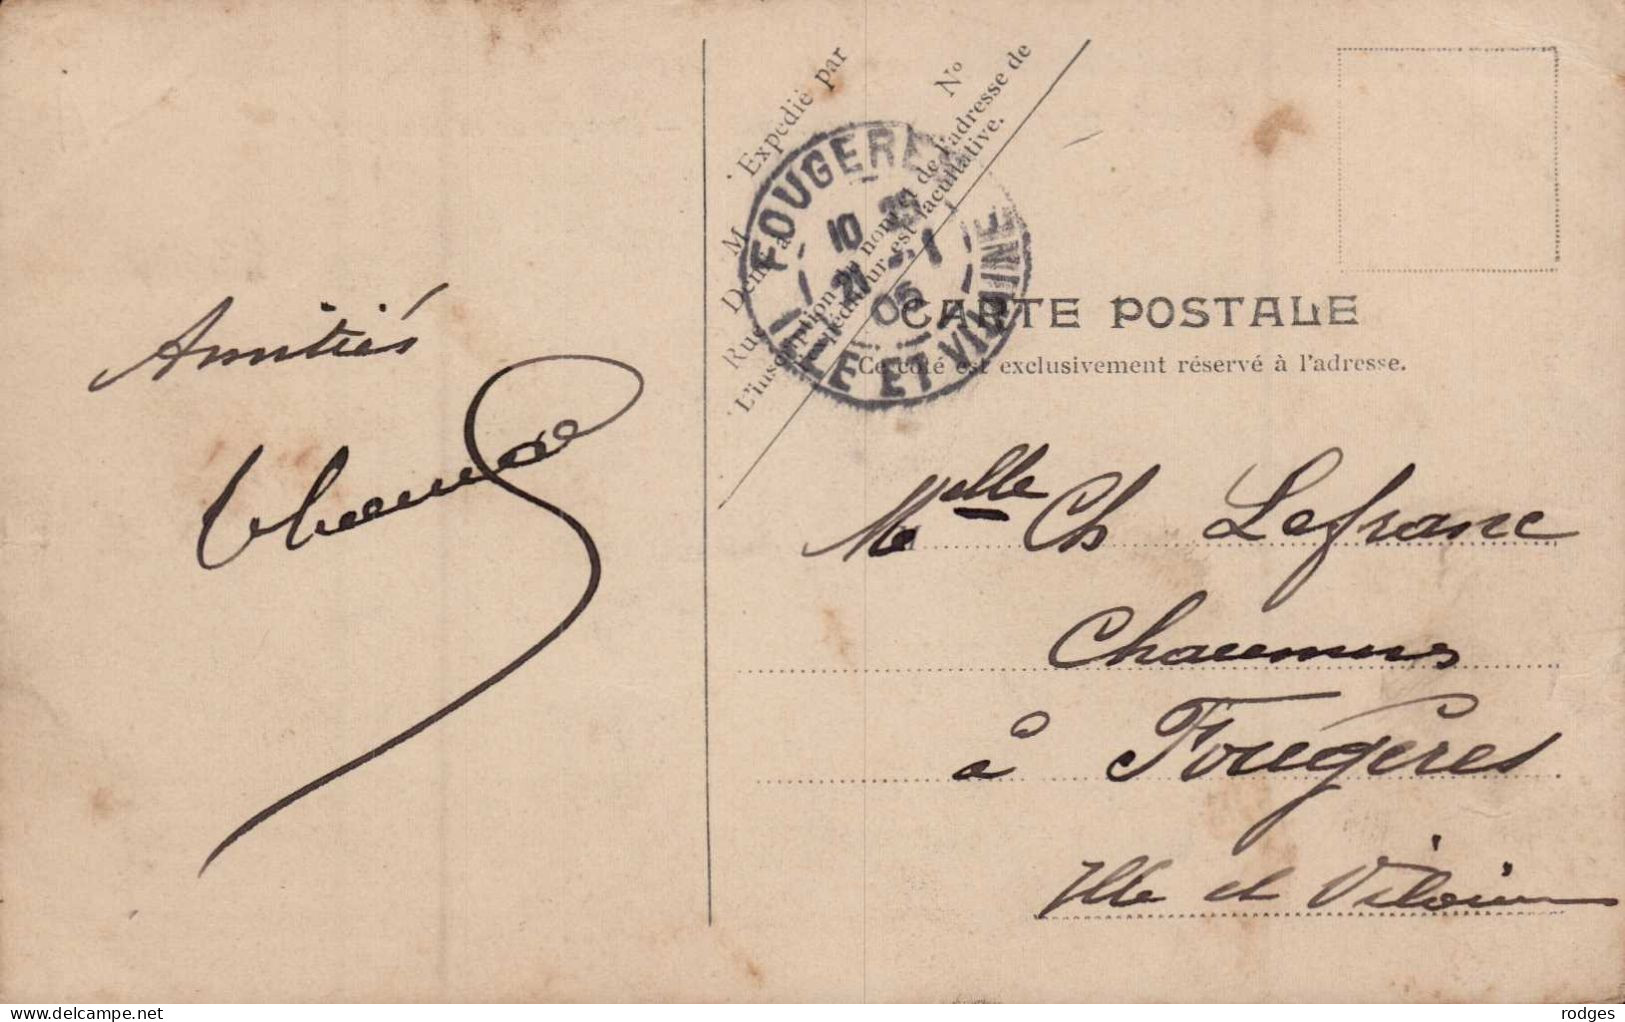 Amitiés
Expédié par
M
Demt à
Rue
N°
L'inscription du nom et de l'adresse de
l'expéditeur est facultative.
FOUGERES
10 25
21 -1
06
ILLE ET VILAINE
CARTE POSTALE
Ce côté est exclusivement réservé à l'adresse.
Melle Ch Lefranc
à Fougères
Ille et Vilaine
rodges